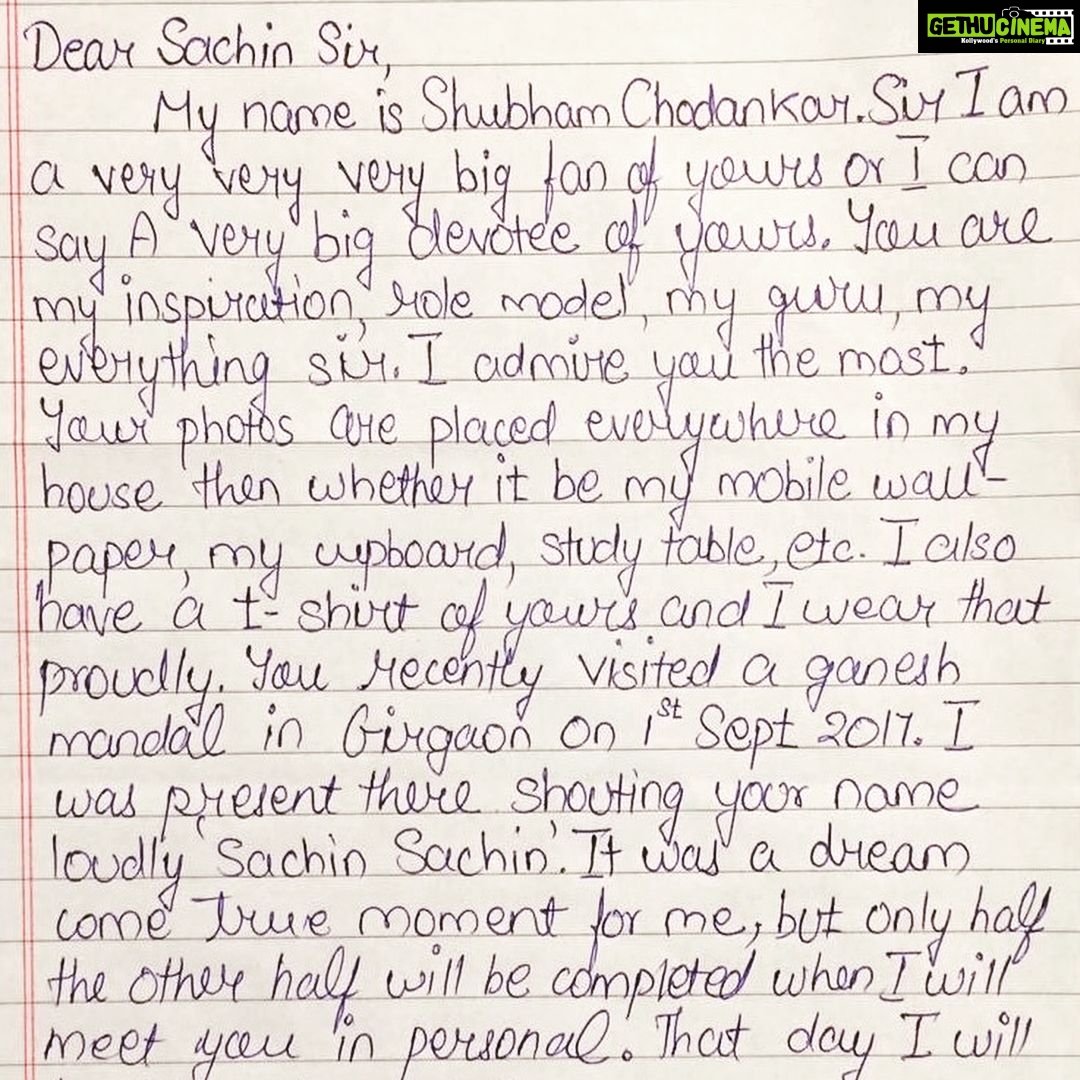 GETHU CINEMA
Kollywood's Personal Diary
Dear Sachin Sir,
My name is Shubham Chodankar. Sir I am
a very very very big fan of yours or I can
say A very big devotee of yours. You are
my inspiration, role model, my guru, my
everything sir. I admire you the most.
Your photos are placed everywhere in my
house then whether it be my mobile wall-
paper, my cupboard, study table, etc. I also
have a t-shirt of yours and I wear that
proudly. You recently visited a ganesh
mandal in Girgaon on 1st Sept 2017. I
was present there shouting your name
loudly 'Sachin Sachin'. It was a dream
come true moment for me, but only half
the other half will be completed when I will
meet you in personal. That day I will